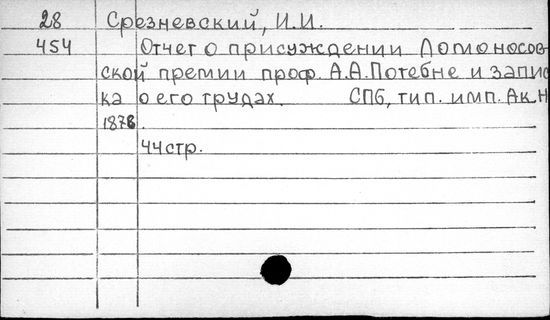 28 Срезневский, И.И.
454 Отчет о присуждении Ломоносов-
ской премии проф. А.А.Потебне и запис
ка о его трудах. СПб, тип. имп. Ак.Н
1878.
44стр.